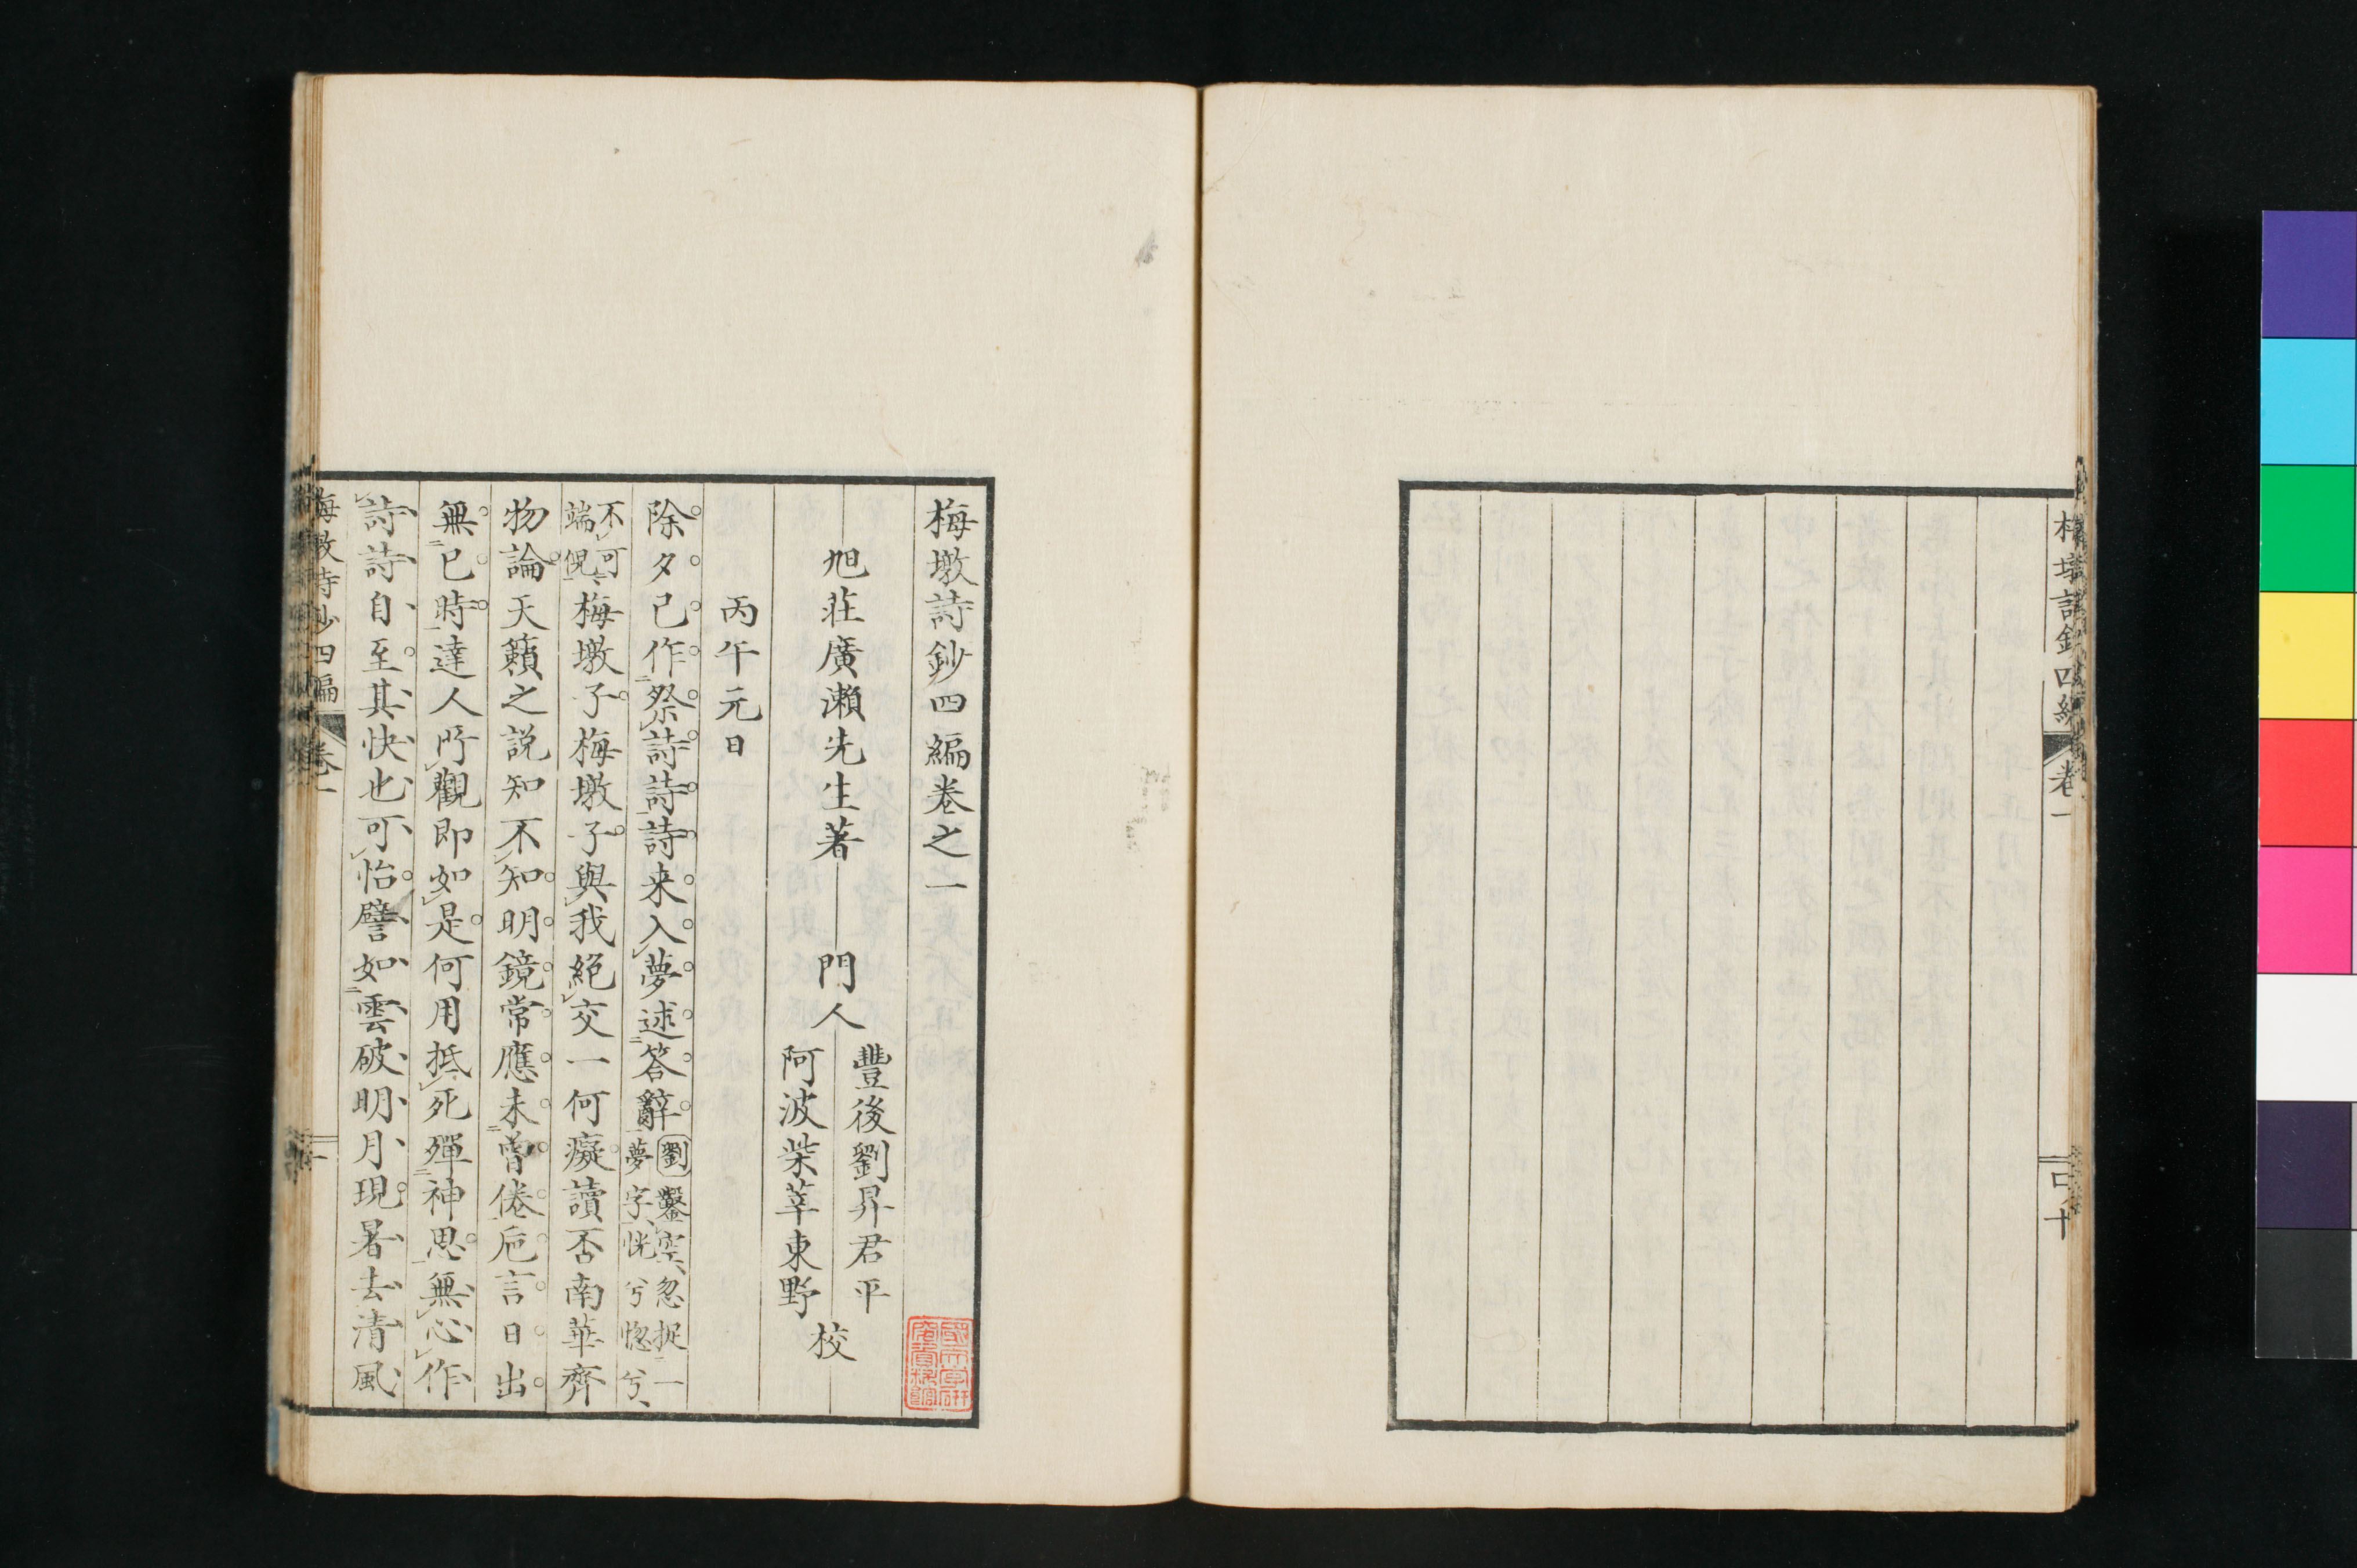 梅墩詩鈔四編
卷一
口十
梅墩詩鈔四編卷之一
旭莊廣瀨先生著
門人
豐後劉昇君平
阿波柴莘東野
校
丙午元日
除夕已作祭詩詩詩来入夢述答辭
劉鑿空忽捉一
夢字恍兮惚兮
不可
端倪
梅墩子梅墩子與我絕交一何癡讀否南華齊
物論天籟之說知不知明鏡常應未曾倦巵言日出
無已時達人所觀即如是何用抵死殫神思無心作
詩詩自至其快也可怡譬如雲破明月現暑去清風
梅墩詩鈔四編
卷一
一